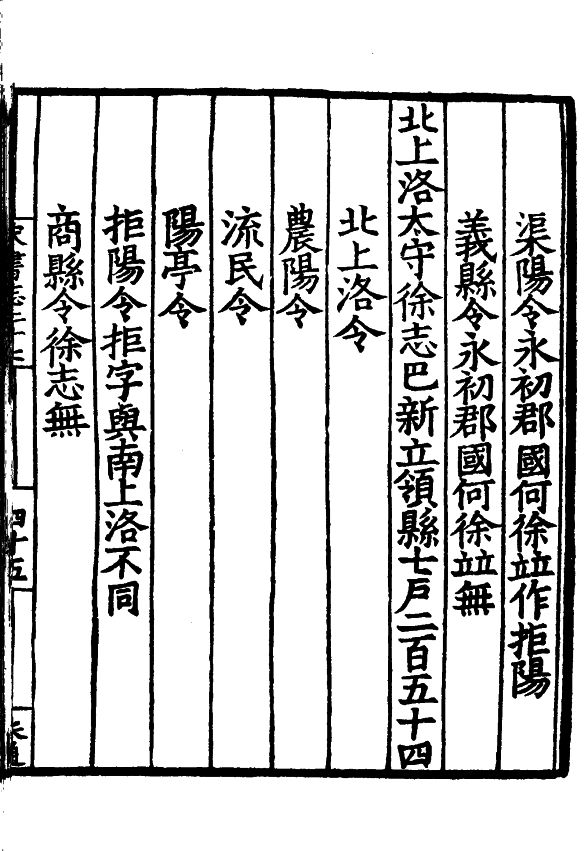 渠陽令永初郡國何徐竝作拒陽
義縣令永初郡國何徐竝無
北上洛太守徐志巴新立領縣七戶二百五十四
北上洛令
農陽令
流民令
陽亭令
拒陽令拒字與南上洛不同
商縣令徐志無
四十五